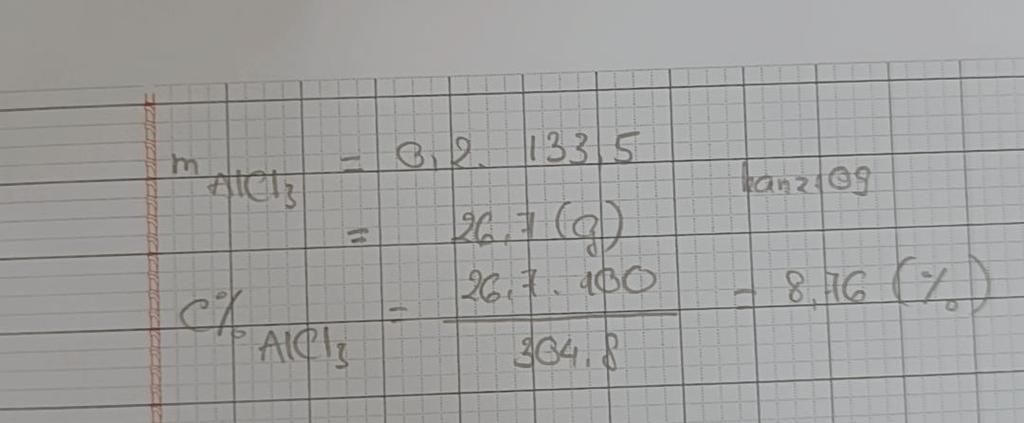 m AlCl3 = 0,2. 133,5
kanz109
= 26,7 (g)
C% AlCl3 = 26,7 . 100 / 304,8 = 8,76 (%)